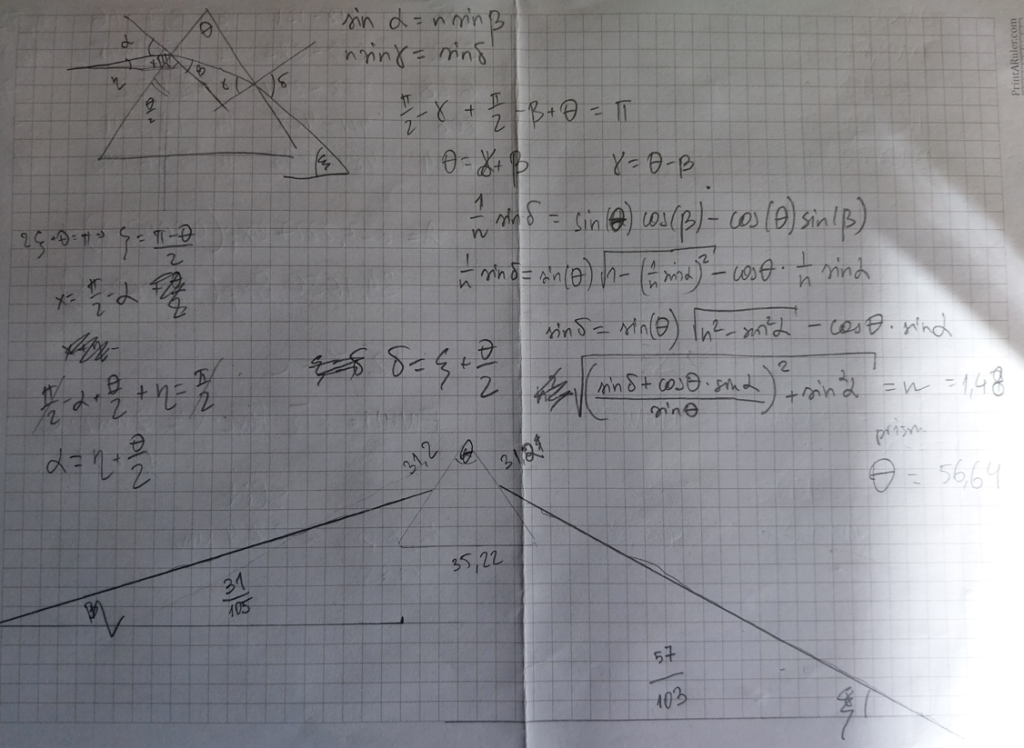 sin α = n sin β
n sin γ = sin δ
α θ
η β γ δ
θ/2
ξ
π/2 - γ + π/2 - β + θ = π
θ = γ + β γ = θ - β
1/n sin δ = sin(θ) cos(β) - cos(θ) sin(β)
1/n sin δ = sin(θ) √(n - (1/n sin α)²) - cos θ · 1/n sin α
sin δ = sin(θ) √(n² - sin² α) - cos θ · sin α
√(((sin δ + cos θ · sin α)/sin θ)² + sin² α) = n = 1,48
prism
θ = 56,64
ξ = (π-θ)/2
x = π/2 - α
π/2 - α + θ/2 + η = π/2
α = η + θ/2
δ = ξ + θ/2
31,2 θ
35,22
31/105
η
57/103
ξ
PrintARuler.com